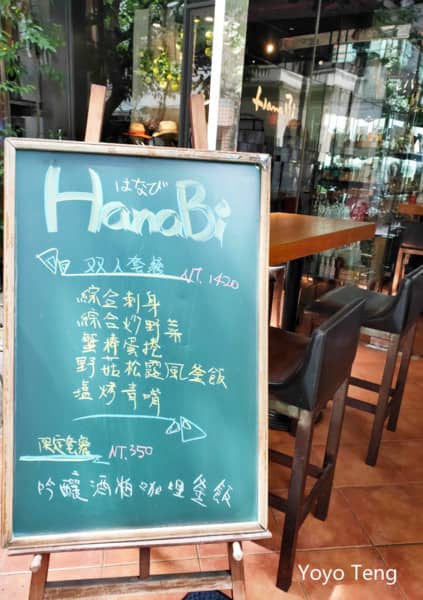 はなび
HanaBi
双人套餐 NT. 1420
綜合刺身
綜合炒野菜
蟹棒蛋捲
野菇松露風釜飯
塩烤青嘴
限定套餐 NT.350
吟釀酒粕咖哩釜飯
Yoyo Teng